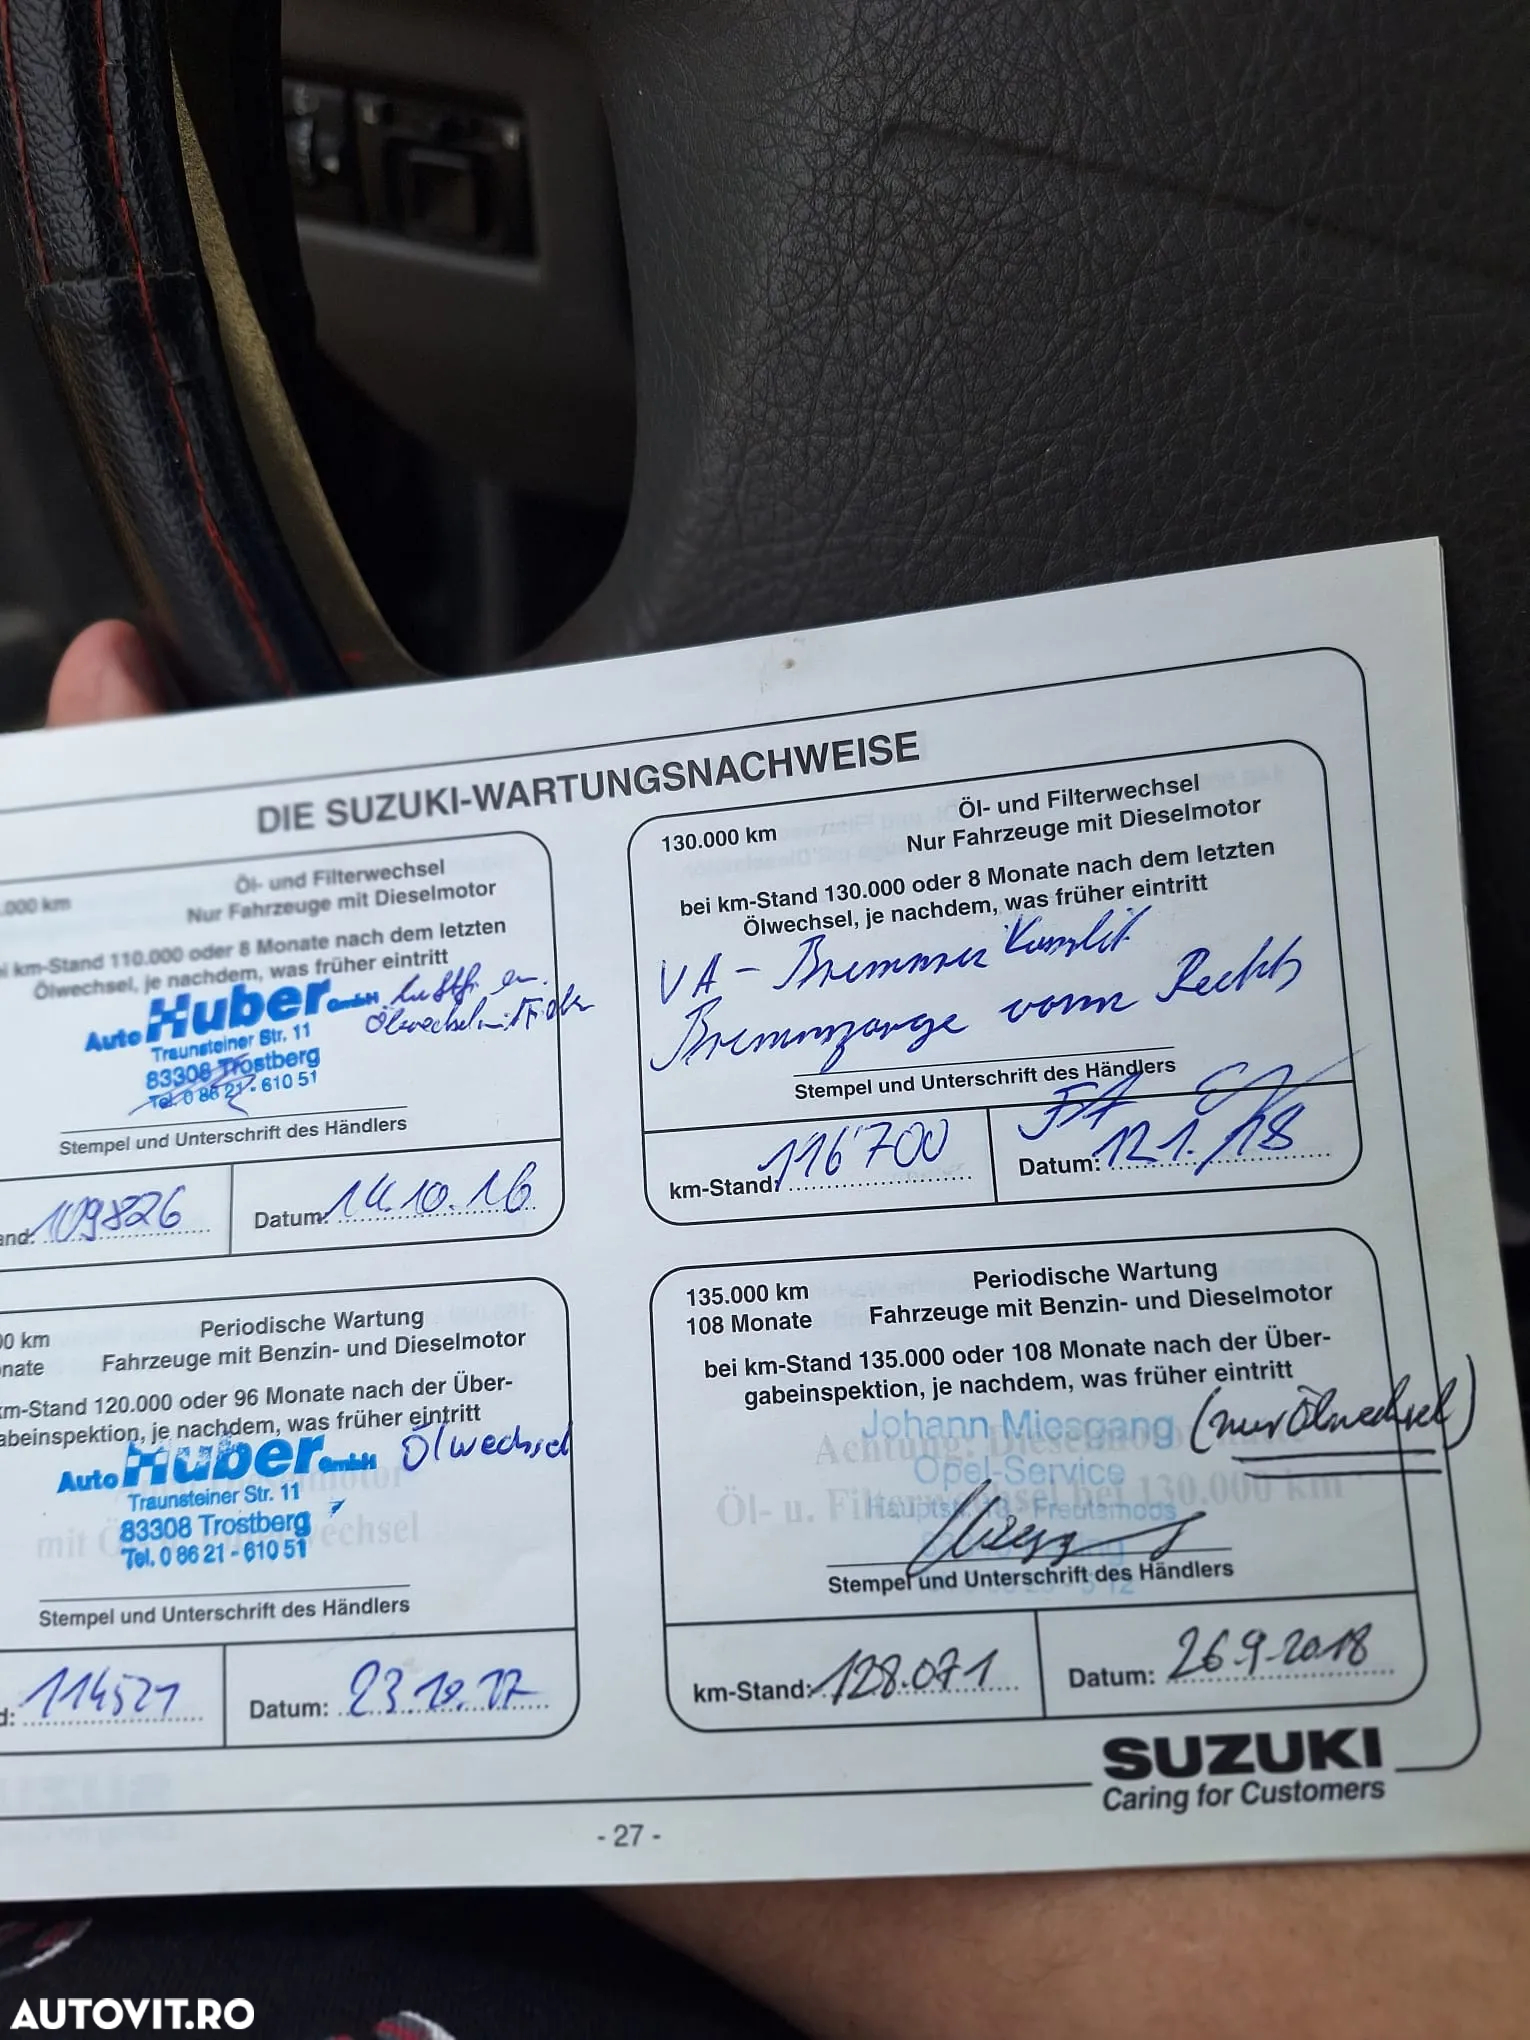 DIE SUZUKI-WARTUNGSNACHWEISE
.000 km
Öl- und Filterwechsel
Nur Fahrzeuge mit Dieselmotor
i km-Stand 110.000 oder 8 Monate nach dem letzten
Ölwechsel, je nachdem, was früher eintritt
Auto Huber GmbH
Ölwechsel mit Filter
Traunsteiner Str. 11
83308 Trostberg
Tel. 0 86 21 - 610 51
Stempel und Unterschrift des Händlers
and: 109826
Datum: 14.10.16
130.000 km
Öl- und Filterwechsel
Nur Fahrzeuge mit Dieselmotor
bei km-Stand 130.000 oder 8 Monate nach dem letzten
Ölwechsel, je nachdem, was früher eintritt
VA - Bremsen Komplett
Bremszange vorne Rechts
Stempel und Unterschrift des Händlers
km-Stand: 116'700
Datum: 12.1.18
00 km
Periodische Wartung
nate
Fahrzeuge mit Benzin- und Dieselmotor
km-Stand 120.000 oder 96 Monate nach der Über-
abeinspektion, je nachdem, was früher eintritt
Auto Huber GmbH Ölwechsel
Traunsteiner Str. 11
83308 Trostberg
Tel. 0 86 21 - 610 51
Stempel und Unterschrift des Händlers
d: 114521
Datum: 23.10.17
135.000 km
Periodische Wartung
108 Monate
Fahrzeuge mit Benzin- und Dieselmotor
bei km-Stand 135.000 oder 108 Monate nach der Über-
gabeinspektion, je nachdem, was früher eintritt
Johann Miesgang (nur Ölwechsel)
Opel-Service
Stempel und Unterschrift des Händlers
km-Stand: 128.071
Datum: 26.9.2018
SUZUKI
Caring for Customers
- 27 -
AUTOVIT.RO